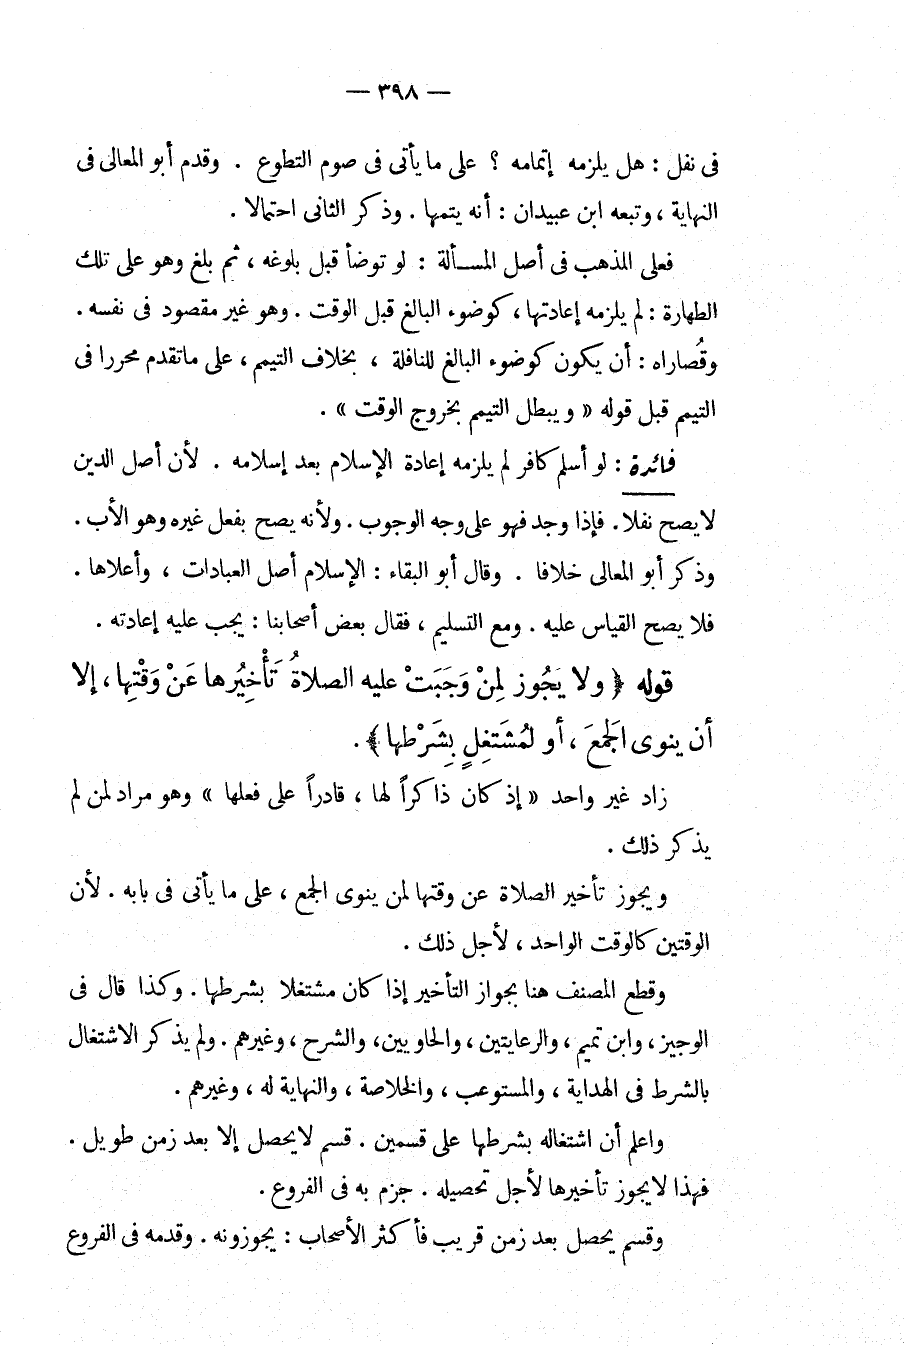 — ٣٩٨ —
فى نفل : هل يلزمه إتمامه ؟ على ما يأتى فى صوم التطوع . وقدم أبو المعالى فى
النهاية ، وتبعه ابن عبيدان : أنه يتمها . وذكر الثانى احتمالا .
فعلى المذهب فى أصل المسألة : لو توضأ قبل بلوغه ، ثم بلغ وهو على تلك
الطهارة : لم يلزمه إعادتها ، كوضوء البالغ قبل الوقت . وهو غير مقصود فى نفسه .
وقُصاراه : أن يكون كوضوء البالغ للنافلة ، بخلاف التيمم ، على ماتقدم محررا فى
التيمم قبل قوله « ويبطل التيمم بخروج الوقت » .
فائدة : لو أسلم كافر لم يلزمه إعادة الإسلام بعد إسلامه . لأن أصل الدين
لايصح نفلا . فإذا وجد فهو على وجه الوجوب . ولأنه يصح بفعل غيره وهو الأب .
وذكر أبو المعالى خلافا . وقال أبو البقاء : الإسلام أصل العبادات ، وأعلاها .
فلا يصح القياس عليه . ومع التسليم ، فقال بعض أصحابنا : يجب عليه إعادته .
قوله ﴿ ولا يَجُوز لِمنْ وَجَبَتْ عليه الصلاةُ تَأْخِيُرها عَنْ وَقْتِها ، إلا
أن ينوى الَجمعَ ، أو لمُشَتغِلٍ بِشَرْطها ﴾ .
زاد غير واحد « إذ كان ذاكراً لها ، قادراً على فعلها » وهو مراد لمن لم
يذكر ذلك .
ويجوز تأخير الصلاة عن وقتها لمن ينوى الجمع ، على ما يأتى فى بابه . لأن
الوقتين كالوقت الواحد ، لأجل ذلك .
وقطع المصنف هنا بجواز التأخير إذا كان مشتغلا بشرطها . وكذا قال فى
الوجيز ، وابن تميم ، والرعايتين ، والحاويين، والشرح ، وغيرهم . ولم يذكر الاشتغال
بالشرط فى الهداية ، والمستوعب ، والخلاصة ، والنهاية له ، وغيرهم .
واعلم أن اشتغاله بشرطها على قسمين . قسم لايحصل إلا بعد زمن طويل .
فهذا لايجوز تأخيرها لأجل تحصيله . جزم به فى الفروع .
وقسم يحصل بعد زمن قريب فأكثر الأصحاب : يجوزونه . وقدمه فى الفروع